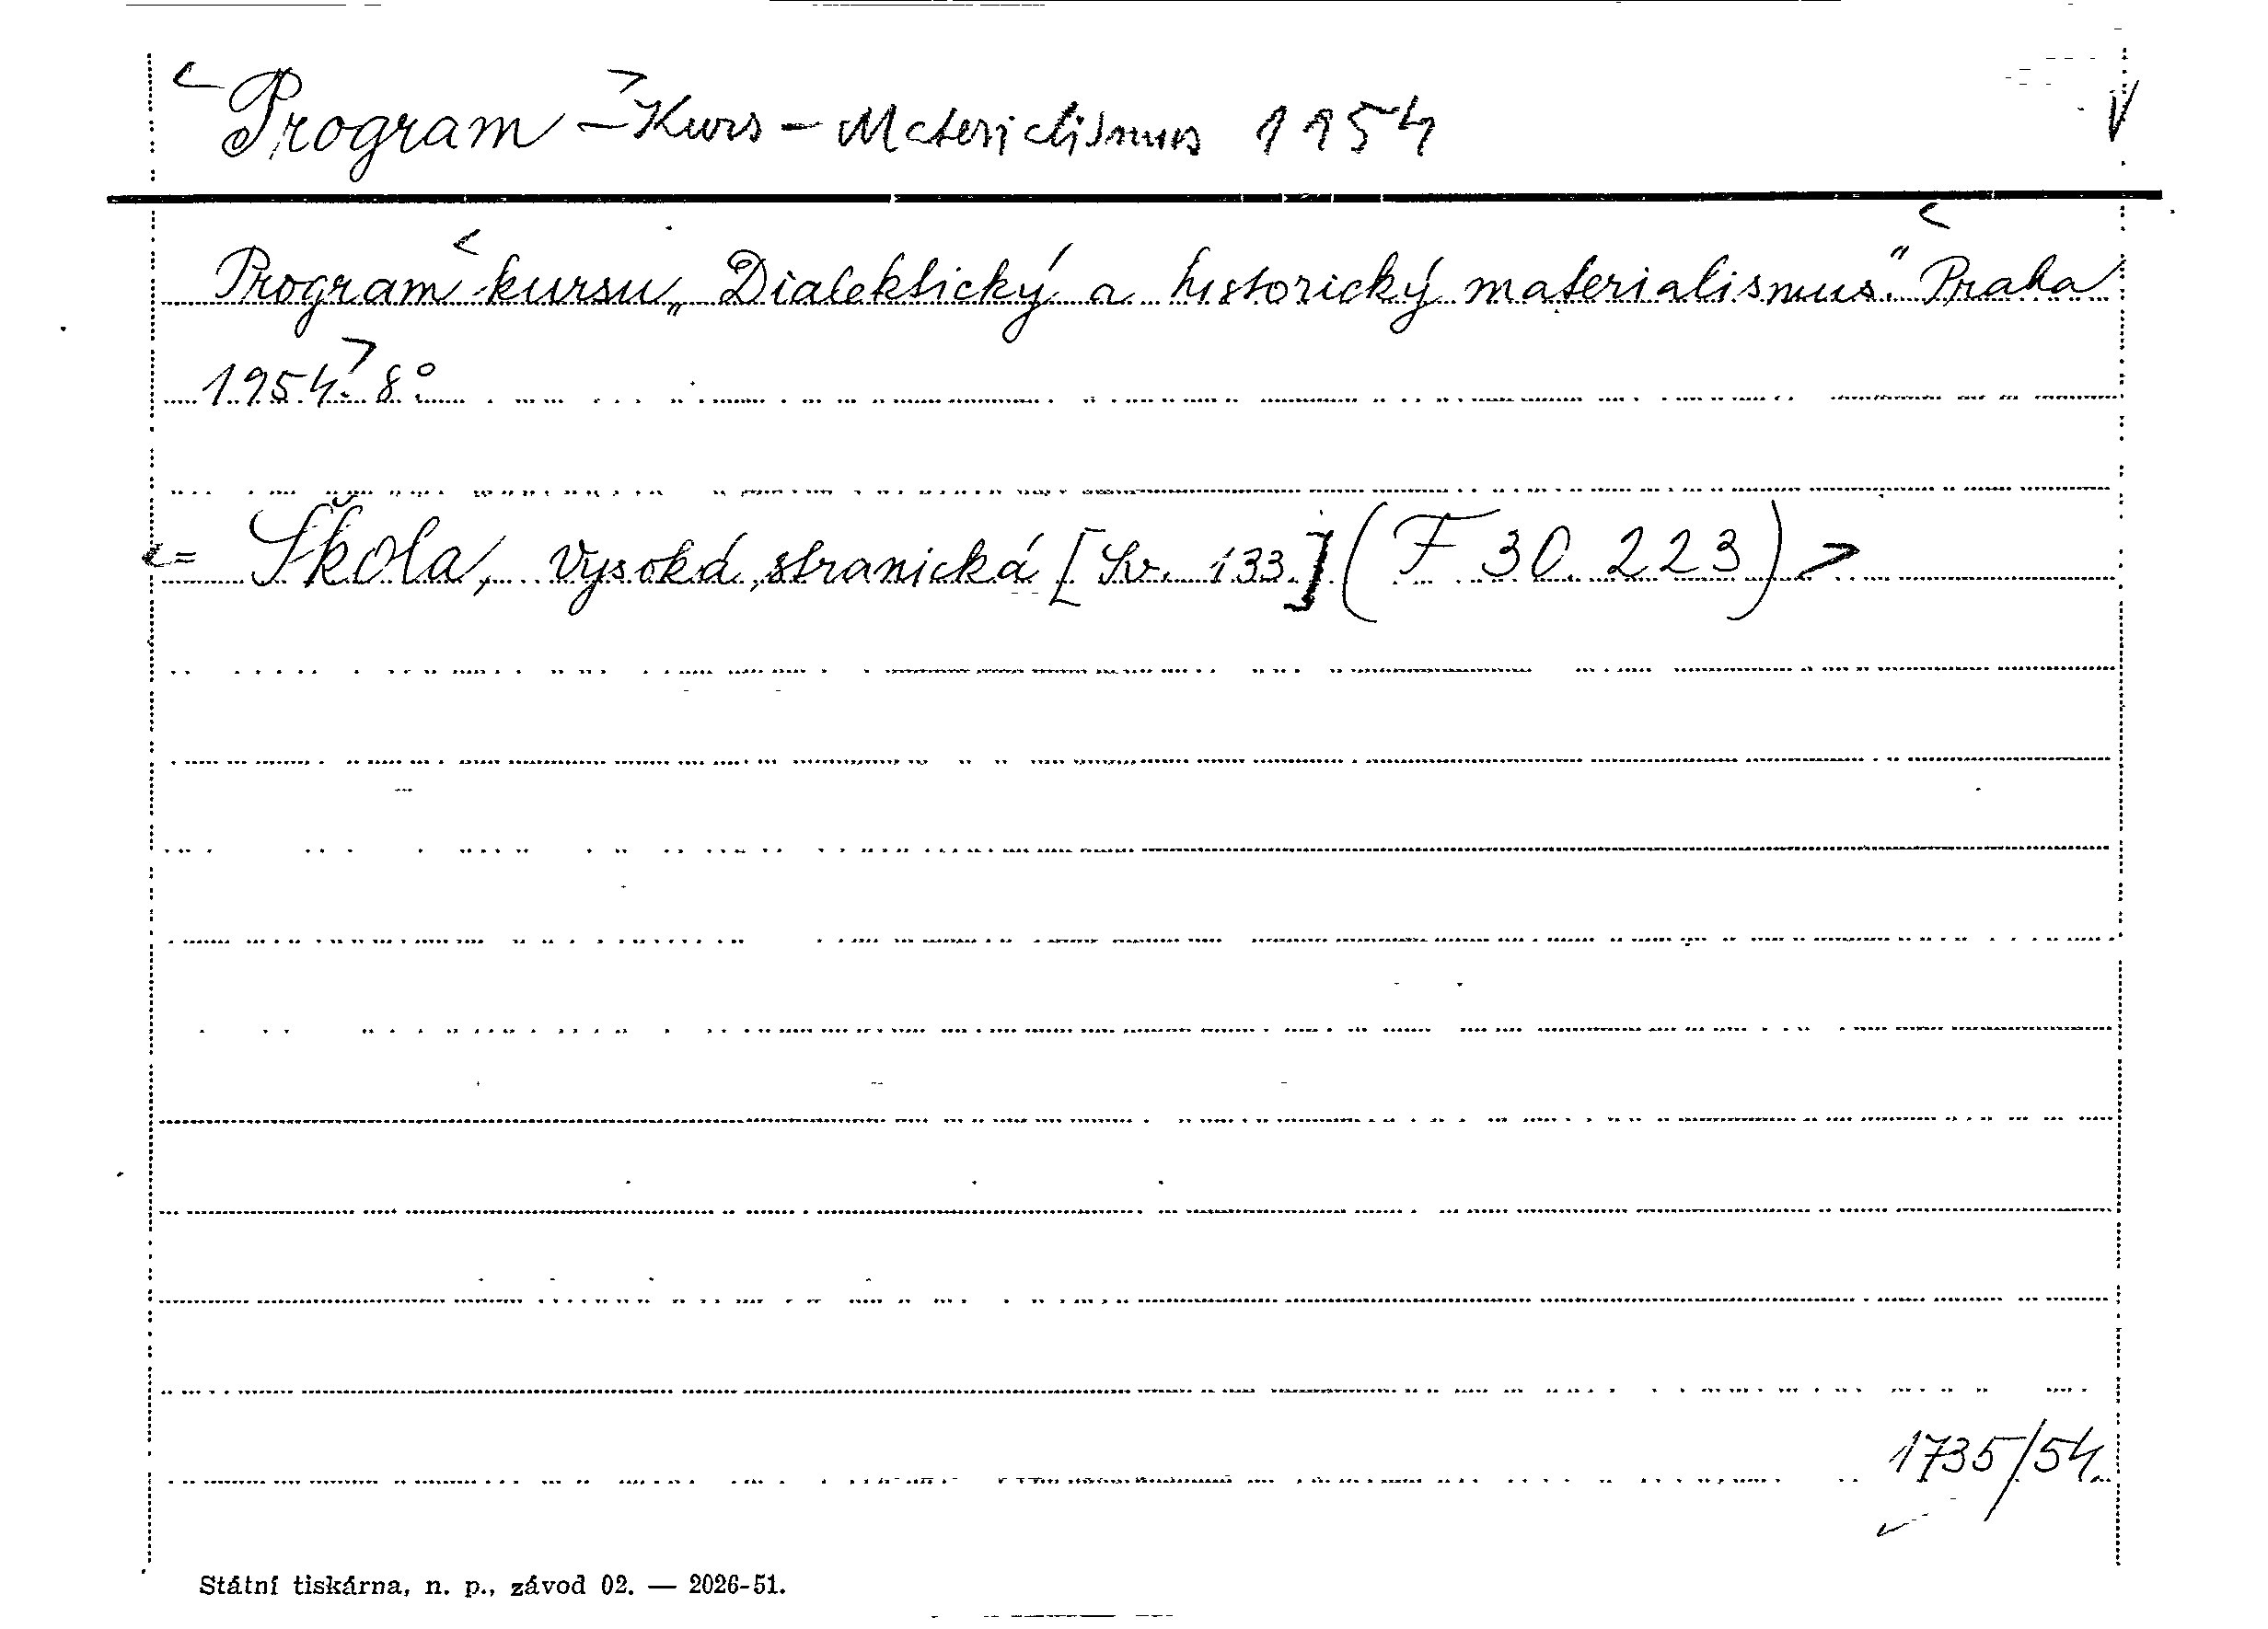 <Program> - Kurs - Materialismus 1954 V
Program <kursu „Dialektický a historický materialismus." <Praha
1954.> 8°.
<= Škola, vysoká, stranická [Sv. 133] (F 30.223) >
1735/54.
Státní tiskárna, n. p., závod 02. — 2026-51.